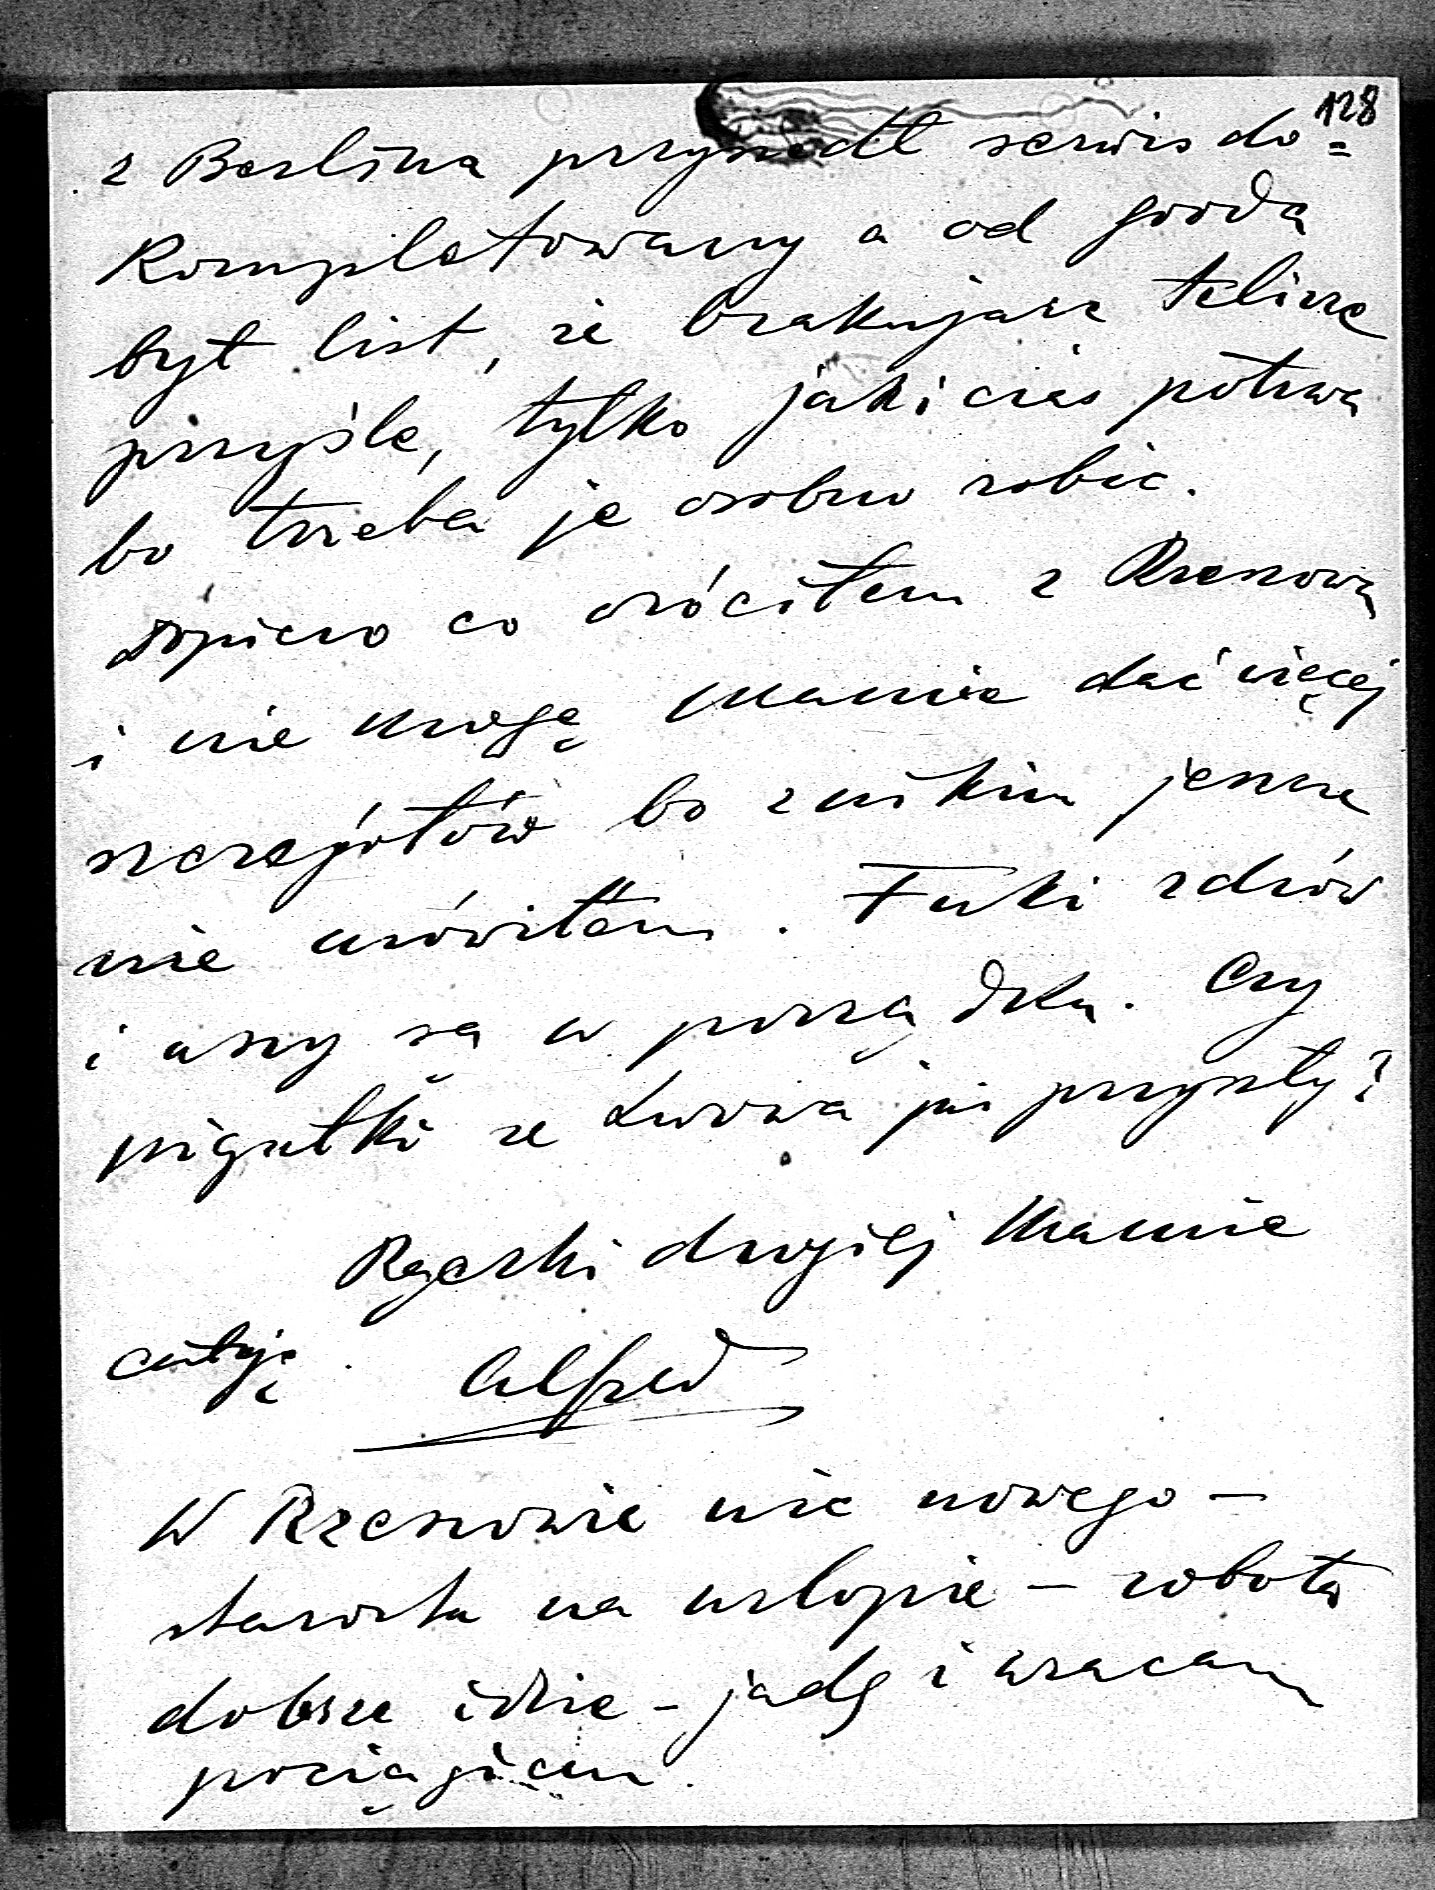 128
z Berlina przyszedł serwis do=
kompletowany a od gooda
był list, że brakujące talerze
przyśle, tylko jakiś czas potrwa
bo trzeba je osobno robić.
Dopiero co wróciłem z Rzeszowa
i nie mogę Mamie dać więcej
szczegółów bo z nikim jeszcze
nie mówiłem. Fuki zdrów
i uszy są w porządku. Czy
pigułki ze Lwowa już przyszły?
Rączki drogiej Mamie
całuję Alfred
W Rzeszowie nic nowego –
starosta na urlopie – robota
dobrze idzie – jadę i wracam
pociągiem.